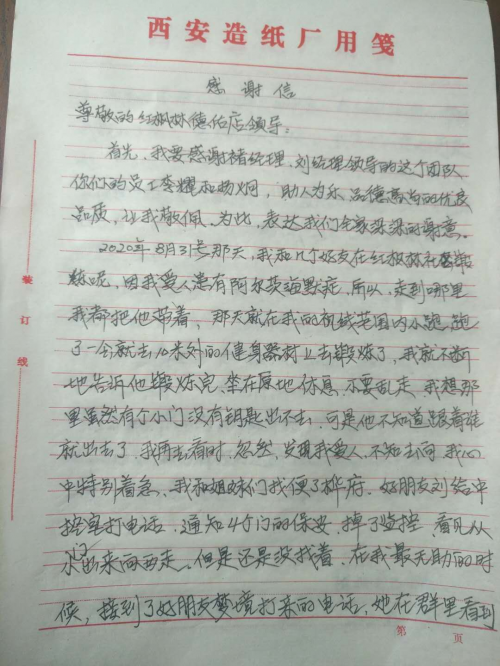 西安造纸厂用笺
感谢信
尊敬的红枫林德佑店领导：
首先，我要感谢褚经理，刘经理领导的这个团队
你们的员工李耀和杨炯，助人为乐，品德高尚的优良
品质，让我敬佩，为此，表达我们全家深深的谢意。
2020年8月31号那天，我和几个好友在红枫林社区锻
炼呢，因我爱人患有阿尔茨海默症，所以，走到哪里
我都把他带着，那天就在我的视线范围内小跑，跑
了一会就去10米外的健身器材上去锻炼了，我就不断
地告诉他锻炼完，坐在原地休息，不要乱走，我想那
里虽然有个小门没有钥匙出不去，可是他不知道跟着谁
就出去了，我再去看时，忽然，发现我爱人，不知去向，我心
中特别着急，我和姐妹们找便了桦府，好朋友刘给中
控室打电话，通知4个门的保安，掉了监控，看见从
小门出来向西走，但是还是没找着，在我最无助的时
候，接到了好朋友梦境打来的电话，她在群里看到
第 页
装订线